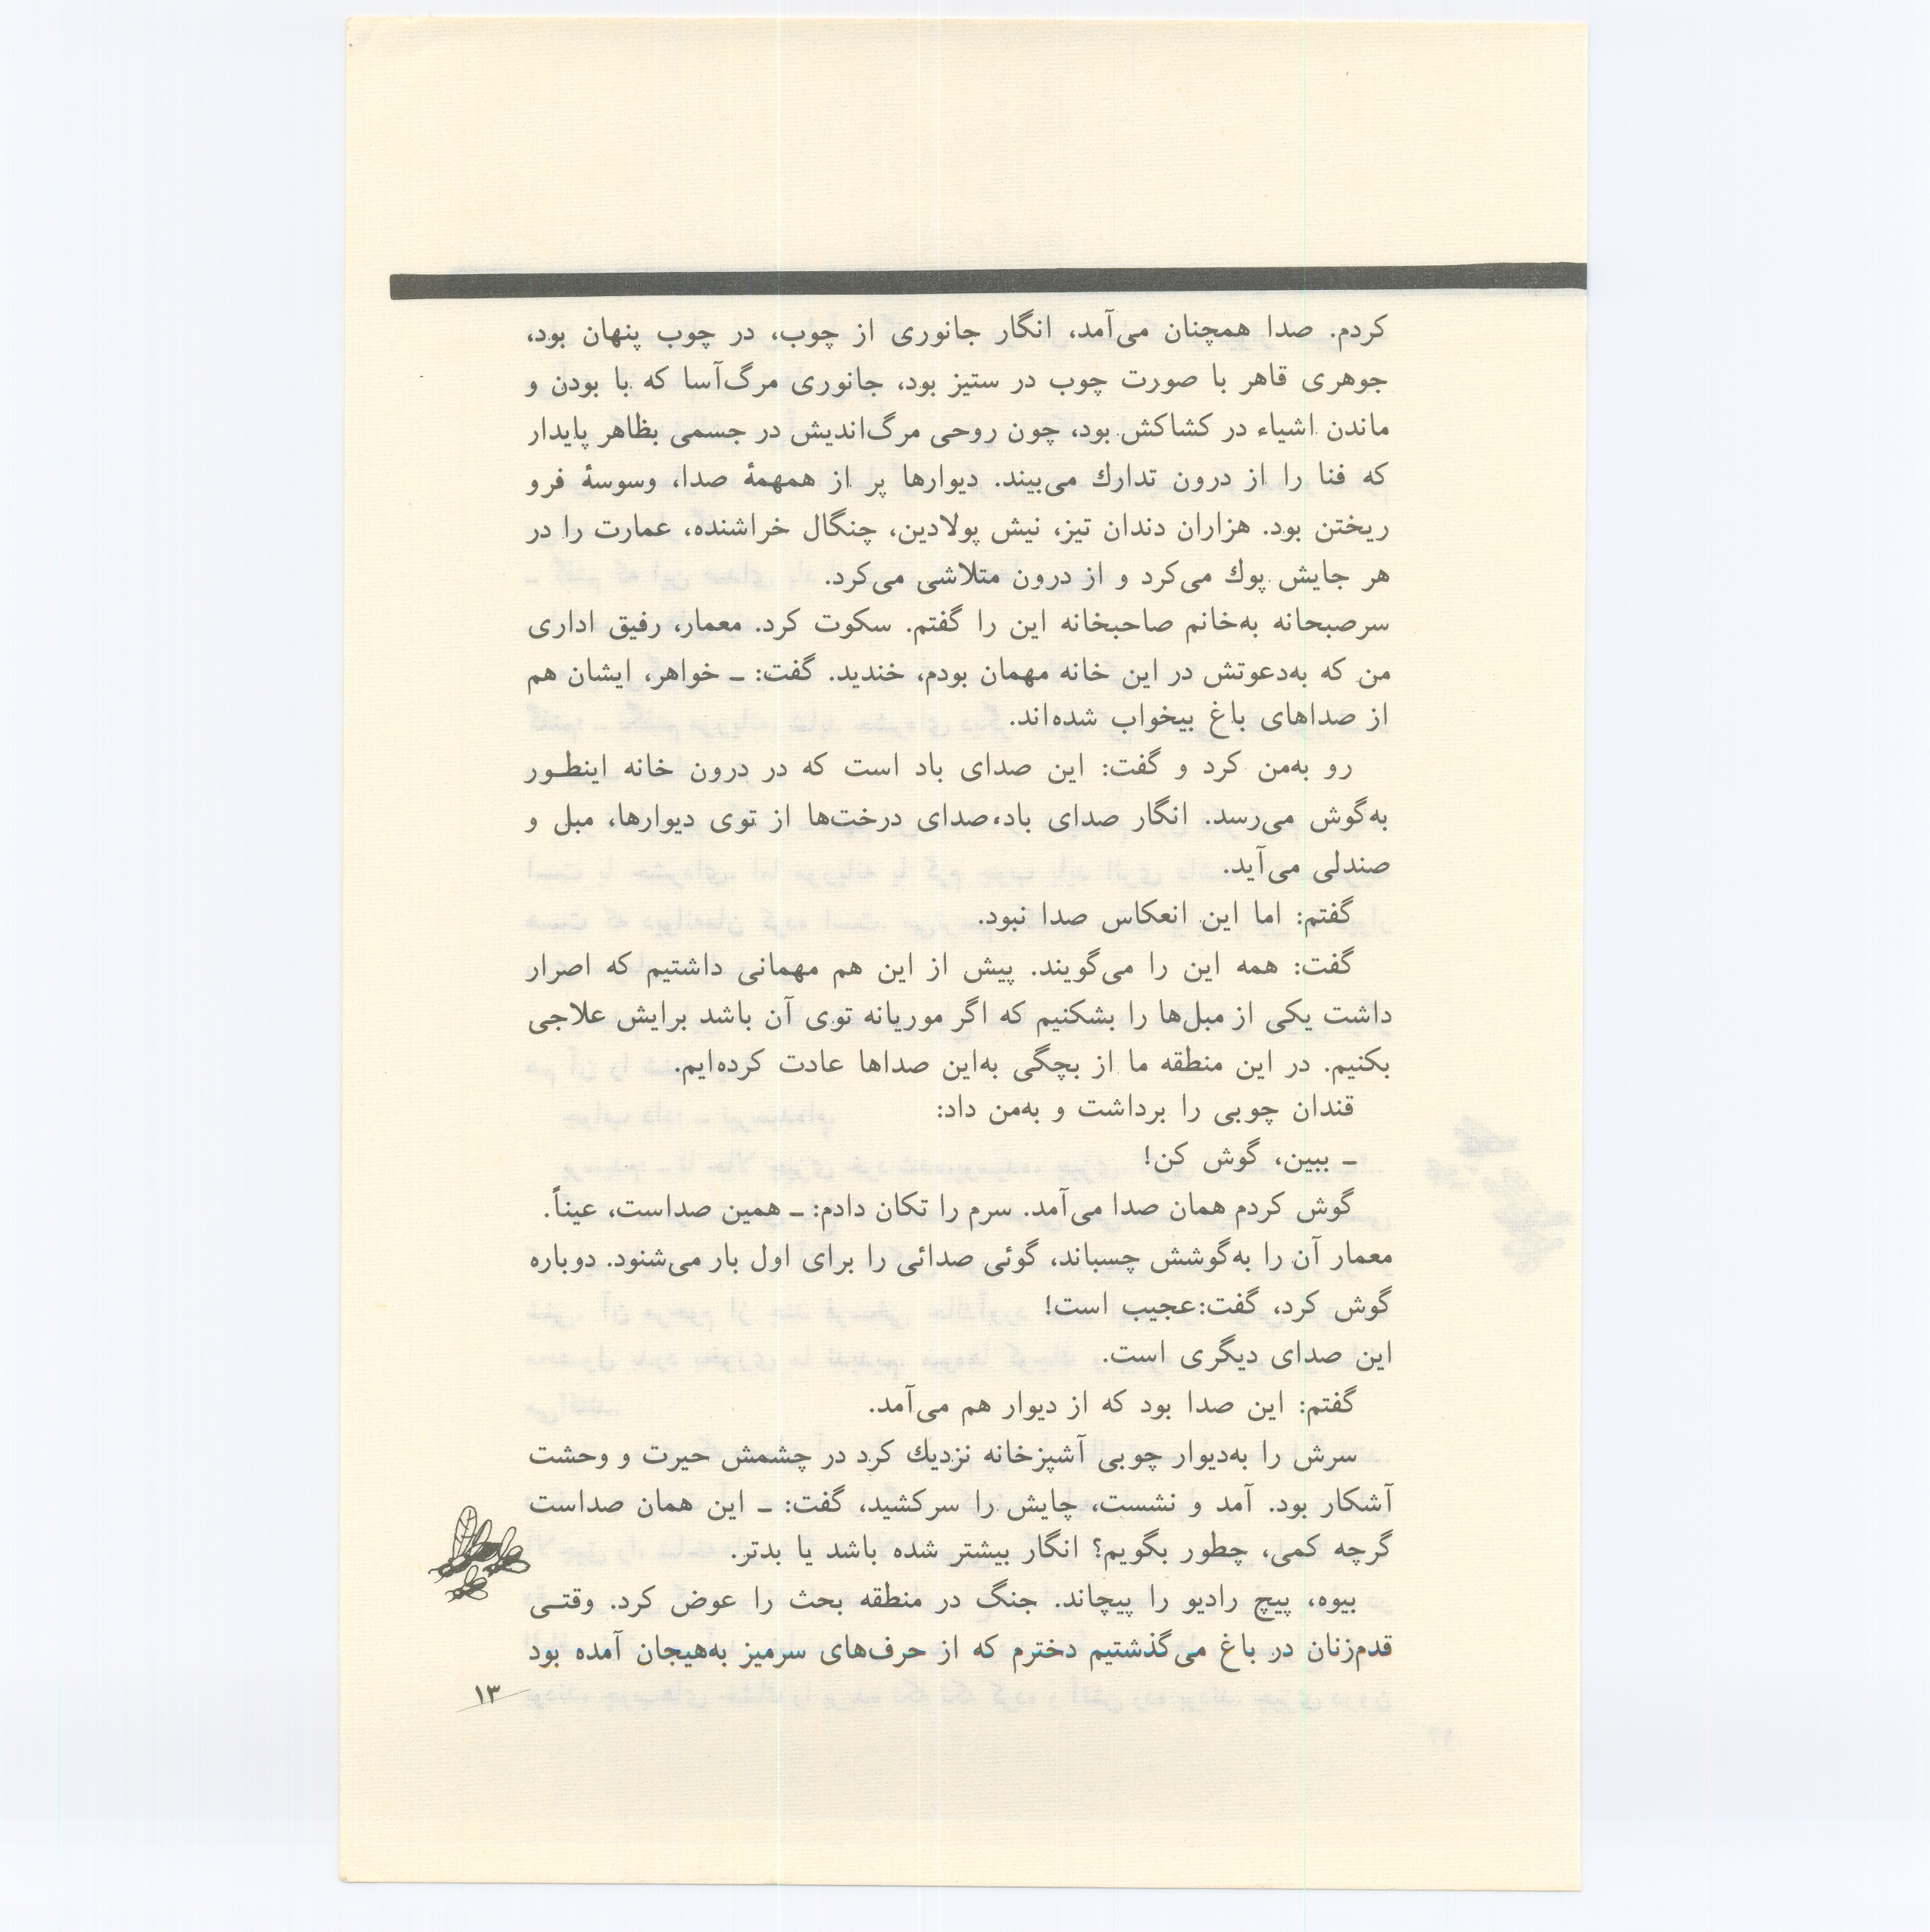 کردم. صدا همچنان می‌آمد، انگار جانوری از چوب، در چوب پنهان بود،
جوهری قاهر با صورت چوب در ستیز بود، جانوری مرگ‌آسا که با بودن و
ماندن اشیاء در کشاکش بود، چون روحی مرگ‌اندیش در جسمی بظاهر پایدار
که فنا را از درون تدارك می‌بیند. دیوارها پر از همهمهٔ صدا، وسوسهٔ فرو
ریختن بود. هزاران دندان تیز، نیش پولادین، چنگال خراشنده، عمارت را در
هر جایش پوك می‌کرد و از درون متلاشی می‌کرد.
سرصبحانه به‌خانم صاحبخانه این را گفتم. سکوت کرد. معمار، رفیق اداری
من که به‌دعوتش در این خانه مهمان بودم، خندید. گفت: ـ خواهر، ایشان هم
از صداهای باغ بیخواب شده‌اند.
رو به‌من کرد و گفت: این صدای باد است که در درون خانه اینطـور
به‌گوش می‌رسد. انگار صدای باد،صدای درخت‌ها از توی دیوارها، مبل و
صندلی می‌آید.
گفتم: اما این انعکاس صدا نبود.
گفت: همه این را می‌گویند. پیش از این هم مهمانی داشتیم که اصرار
داشت یکی از مبل‌ها را بشکنیم که اگر موریانه توی آن باشد برایش علاجی
بکنیم. در این منطقه ما از بچگی به‌این صداها عادت کرده‌ایم.
قندان چوبی را برداشت و به‌من داد:
ـ ببین، گوش کن!
گوش کردم همان صدا می‌آمد. سرم را تکان دادم: ـ همین صداست، عیناً.
معمار آن را به‌گوشش چسباند، گوئی صدائی را برای اول بار می‌شنود. دوباره
گوش کرد، گفت:عجیب است!
این صدای دیگری است.
گفتم: این صدا بود که از دیوار هم می‌آمد.
سرش را به‌دیوار چوبی آشپزخانه نزدیك کرد در چشمش حیرت و وحشت
آشکار بود. آمد و نشست، چایش را سرکشید، گفت: ـ این همان صداست
گرچه کمی، چطور بگویم؟ انگار بیشتر شده باشد یا بدتر.
بیوه، پیچ رادیو را پیچاند. جنگ در منطقه بحث را عوض کرد. وقتـی
قدم‌زنان در باغ می‌گذشتیم دخترم که از حرف‌های سرمیز به‌هیجان آمده بود
۱۳